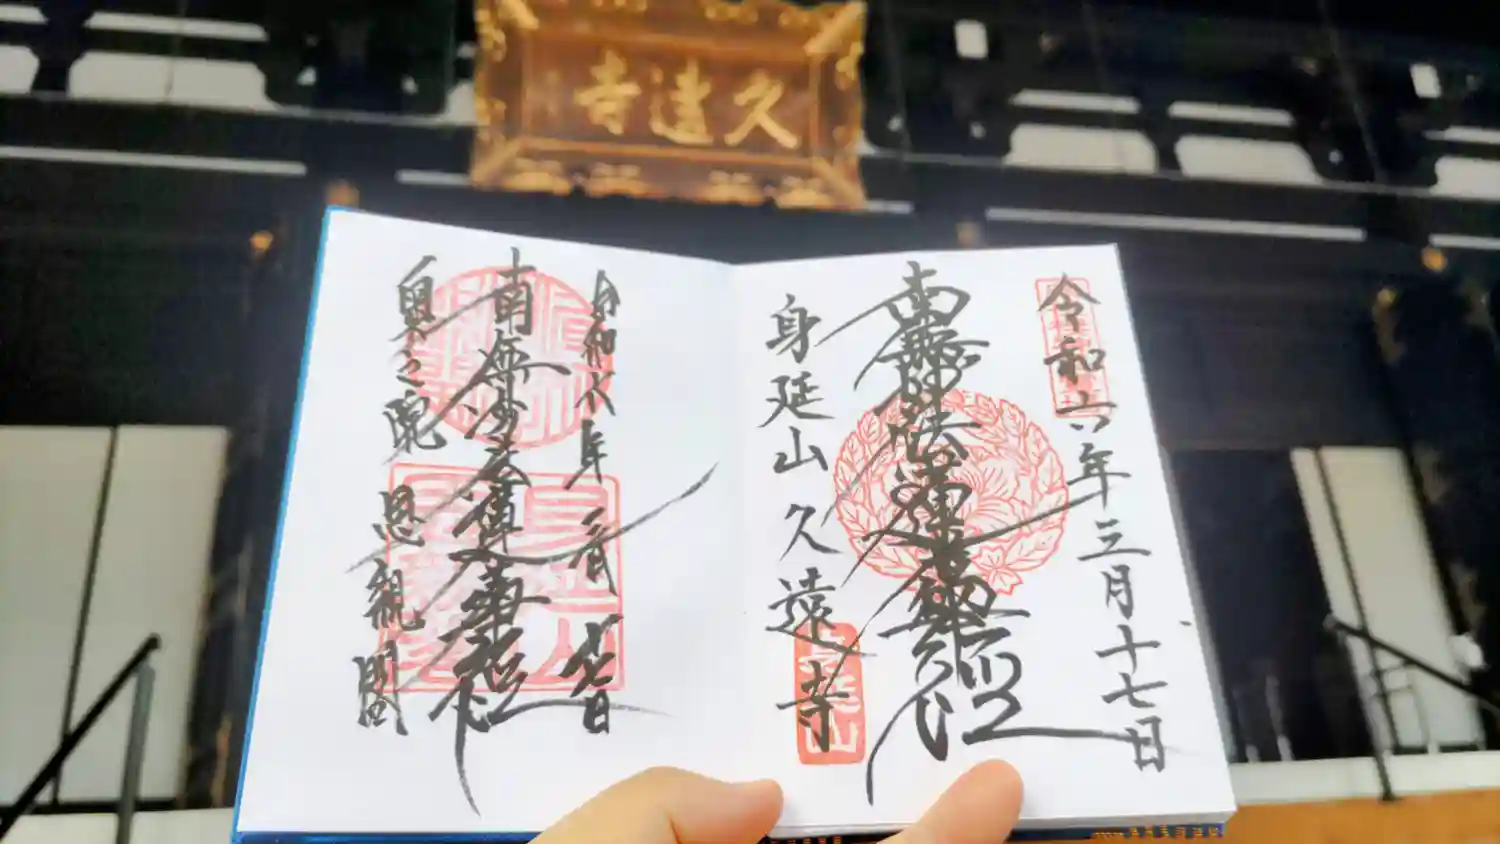 久遠寺
令和六年三月十七日
南無妙法蓮華経
身延山久遠寺
令和六年三月十七日
南無妙法蓮華経
奥之院 思親閣